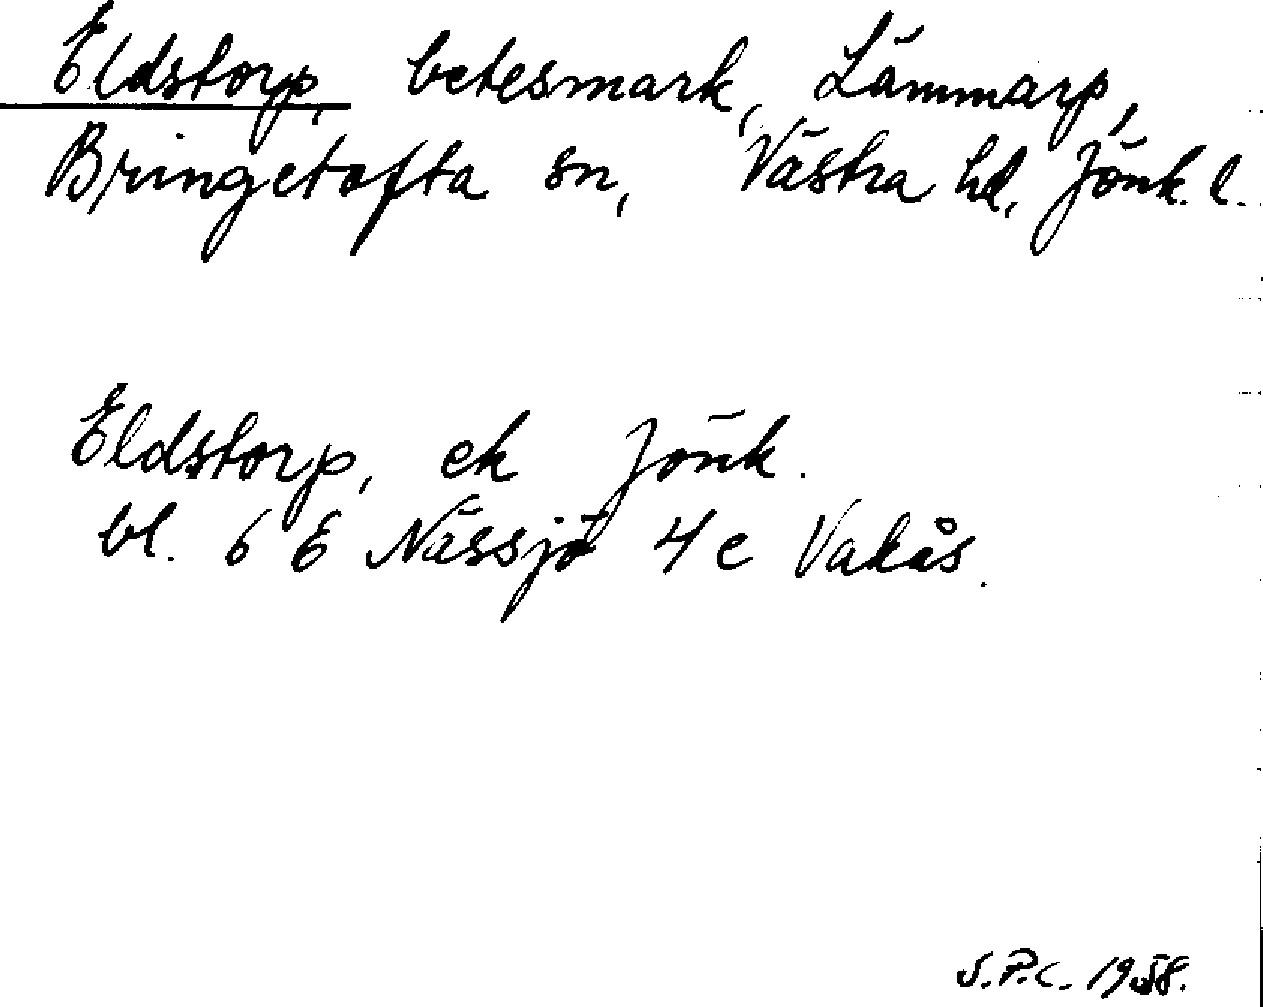 Eldstorp, betesmark, Lämmarp,
Bringetofta sn, Västra hd, Jönk. l.
Eldstorp, ek Jönk.
bl. 6 E Nässjö 4 e Vakås.
S.P.C. 1958.